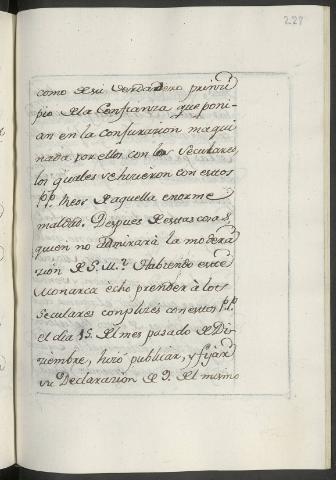 227
como de su verdadero princi
pio de la Confianza, que poni-
an en la conjuracion maqui
nada por ellos con los Seculares,
los quales se hicieron con estos
P.P. Reos de aquella enorme
maldad. Despues de estas cosas
quien no admirará la modera
zion de S. M.? Habiendo este
Monarca echo prender á los
Seculares conplizes con estos P.P.
el dia 13. del mes pasado de Di-
ziembre, hizo publicar, y fijar
su Declarazion de 9. del mismo